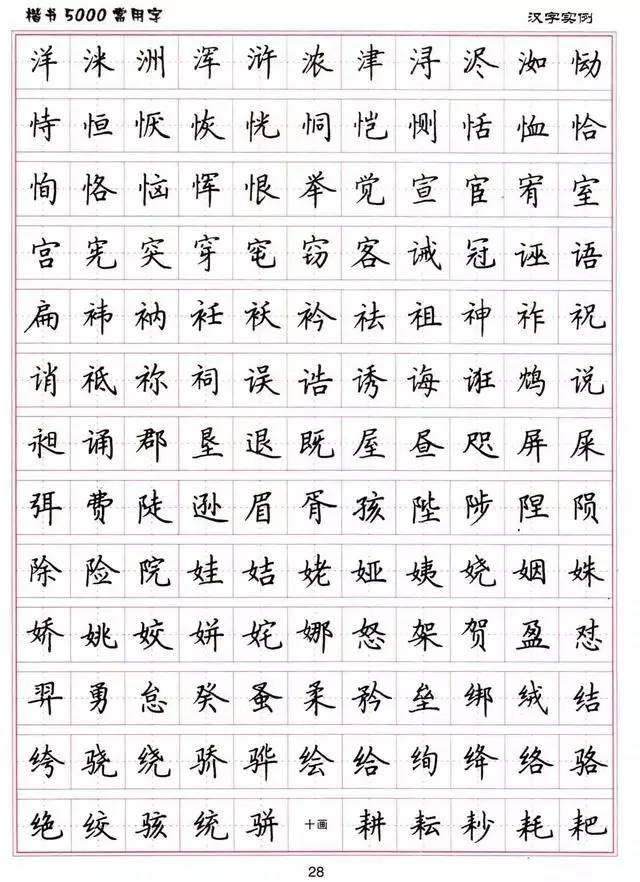 楷书5000常用字 汉字实例
洋洣洲浑浒浓津浔浕洳恸
恃恒恹恢恍恫恺恻恬恤恰
恂恪恼恽恨举觉宣宦宥室
宫宪突穿窀窃客诫冠诬语
扁袆衲衽袄衿祛祖神祚祝
诮祗祢祠误诰诱诲诳鸩说
昶诵郡垦退既屋昼咫屏屎
弭费陡逊眉胥孩陛陟陧陨
除险院娃姞姥娅姨娆姻姝
娇姚姣姘姹娜怒架贺盈怼
羿勇怠癸蚤柔矜垒绑绒结
绔骁绕骄骅绘给绚绛络骆
绝绞骇统骈十画耕耘耖耗耙
28